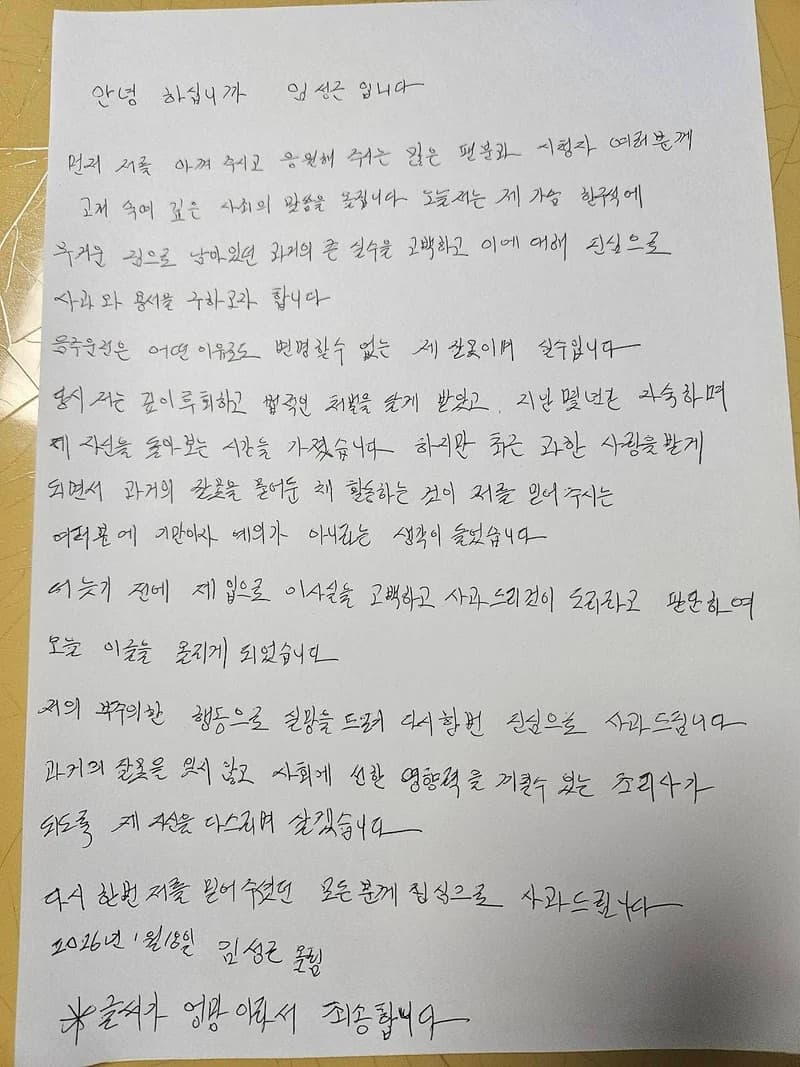 안녕 하십니까 임성근 입니다
먼저 저를 아껴 주시고 응원해 주시는 많은 팬분과 시청자 여러분께
고개 숙여 깊은 사죄의 말씀을 올립니다 오늘 저는 제 가슴 한구석에
무거운 짐으로 남아있던 과거의 큰 실수을 고백하고 이에 대해 진심으로
사과와 용서를 구하고자 합니다
음주운전은 어떤 이유로도 변명할수 없는 제 잘못이며 실수입니다
당시 저는 깊이 후회하고 법적인 처벌을 달게 받았고, 지난 몇년간 자숙하며
제 자신을 돌아보는 시간을 가졌습니다 하지만 최근 과한 사랑을 받게
되면서 과거의 잘못을 묻어둔 채 활동하는 것이 저를 믿어 주시는
여러분에 기만이자 예의가 아니라는 생각이 들었습니다
더 늦기 전에 제 입으로 이사실을 고백하고 사과드리것이 도리라고 판단하여
오늘 이글을 올리게 되었습니다
저의 부주의한 행동으로 실망을 드려 다시한번 진심으로 사과드립니다
과거의 잘못을 잊지 않고 사회게 선한 영향력을 끼칠수 있는 조리사가
되도록 제 자신을 다스리며 살겠습니다
다시 한번 저를 믿어 주셨던 모든 분께 진심으로 사과드립니다
2026년 1월 18일 임성근 올림
※ 글씨가 엉망이라서 죄송합니다